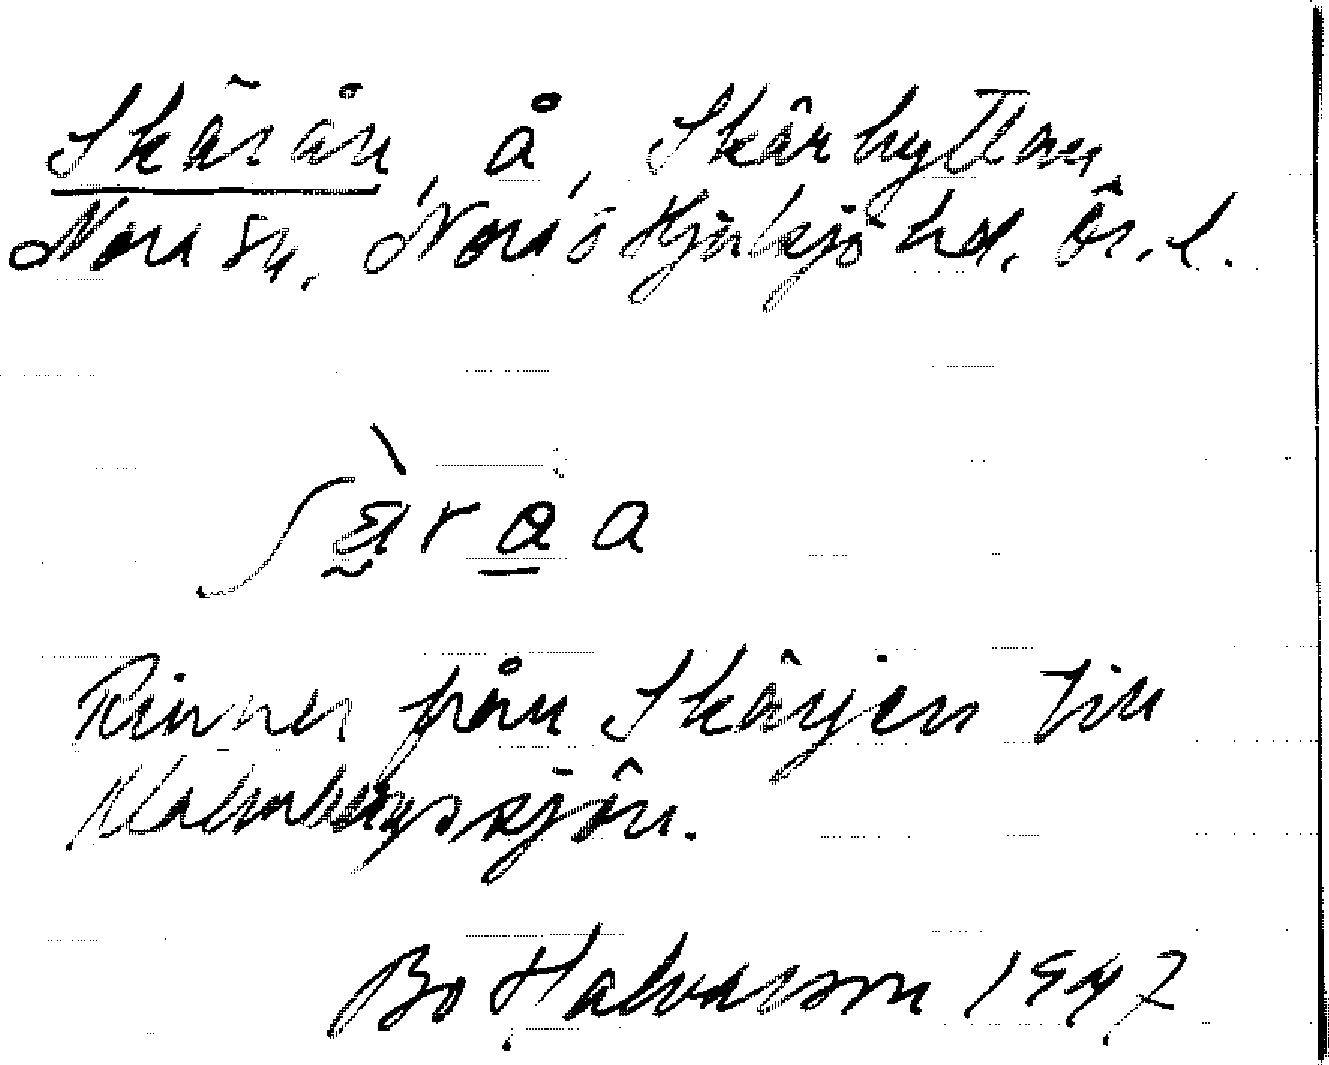 Skärån, å, Skärhyttan,
Nora sn, Nora o Hjulsjö hd, Ör. l.
Rinner från Skärjen till
Malmbergssjön.
Bo Halvarson 1947